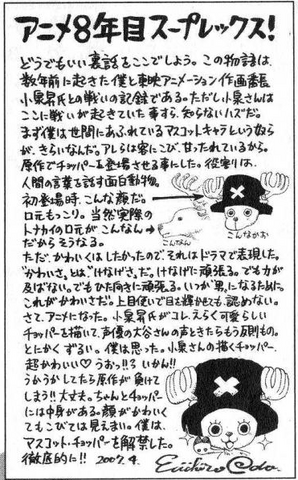 アニメ8年目スープレックス!
どうでもいい裏話をここでしよう。この物語は、
数年前に起きた僕と東映アニメーション作画番長
小泉昇氏との戦いの記録である。ただし小泉さんは
ここに戦いが起きていた事すら、知らないハズだ。
まず僕は世間にあふれているマスコットキャラという奴らが、
きらいなんだ。アレらは客にこび、甘ったれているから。
原作でチョッパーを登場させる事にした。役割りは、
人間の言葉を話す面白動物。
初登場時、こんな顔だ。
口元もっこり。当然実際の
トナカイの口元が こんなん
だからそうなる。
こんなん
こんなかお
ただ、かわいくはしたかったので、それはドラマで表現した。
"かわいさ"とは"けなげさ"だ。けなげに頑張る。でも力が
及ばない。でもひた向きに頑張る。いつか"男"になるために。
これがかわいさだ。上目使いで目を輝かせても、認めない。
さて、アニメになった。小泉氏がコレ、えらく可愛らしい
チョッパーを描いて、声優の大谷さんの声ときたらもう反則もの。
とにかく ずるい。僕は思った。小泉さんの描くチョッパー、
超かわいい♡うおっ!!ろ いかん!!
うかうかしてたら原作が負けて
しまう!!大丈夫。ちゃんとチョッパー
には中身がある。顔がかわいく
てもこびてとは見えまい。僕は、
マスコット・チョッパーを解禁した。
徹底的に!! 2007. 4.
Eiichiro Oda